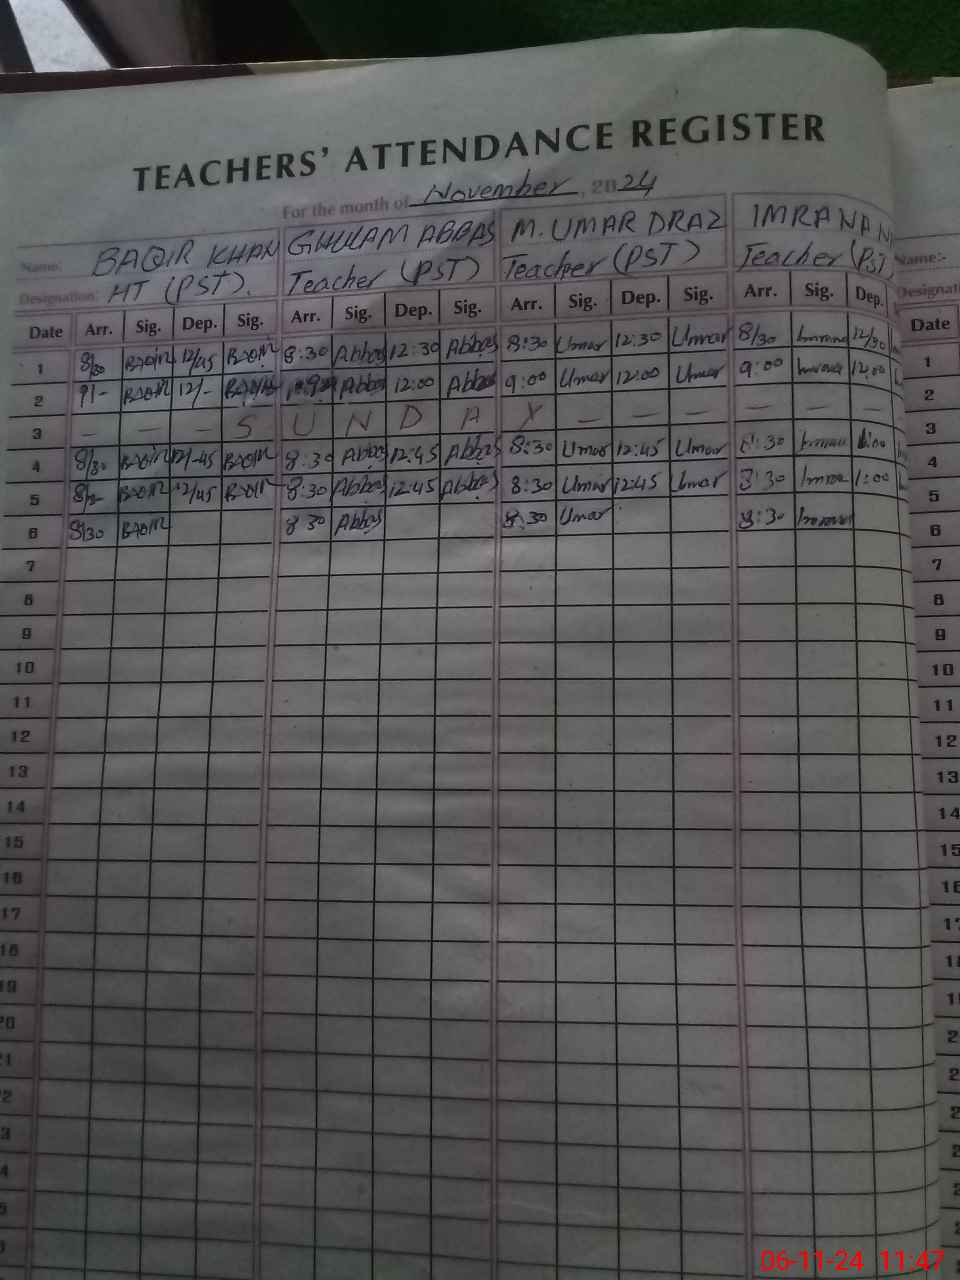 TEACHERS' ATTENDANCE REGISTER
For the month of November, 2024
Name: BAQIR KHAN GHULAM ABBAS M. UMAR DRAZ IMRAN Name:-
Designation: HT (PST). Teacher (PST) Teacher (PST) Teacher (PST)
Date Arr. Sig. Dep. Sig. Arr. Sig. Dep. Sig. Arr. Sig. Dep. Sig. Arr. Sig. Dep. Date
1 8/30 BAQIR 12/45 BAQIR 8:30 Abbas 12:30 Abbas 8:30 Umar 12:30 Umar 8/30 Imran 12/30 1
2 9/- BAQIR 12/- BAQIR Abbas 12:00 Abbas 9:00 Umar 12:00 Umar 9:00 Imran 12:00 2
3 – – – S U N D A Y – – – – – – 3
4 8/30 BAQIR 12/-45 BAQIR 8:30 Abbas 12:45 Abbas 8:30 Umar 12:45 Umar 8:30 Imran 1:00 4
5 BAQIR 12/45 BAQIR 8:30 Abbas 12:45 Abbas 8:30 Umar 12:45 Umar 8:30 Imran 1:00 5
6 8/30 BAQIR 8:30 Abbas 8:30 Umar 8:30 Imran 6
7 7
8 8
9 9
10 10
11 11
12 12
13 13
14 14
15 15
16
17
18
19
20
06-11-24 11:47